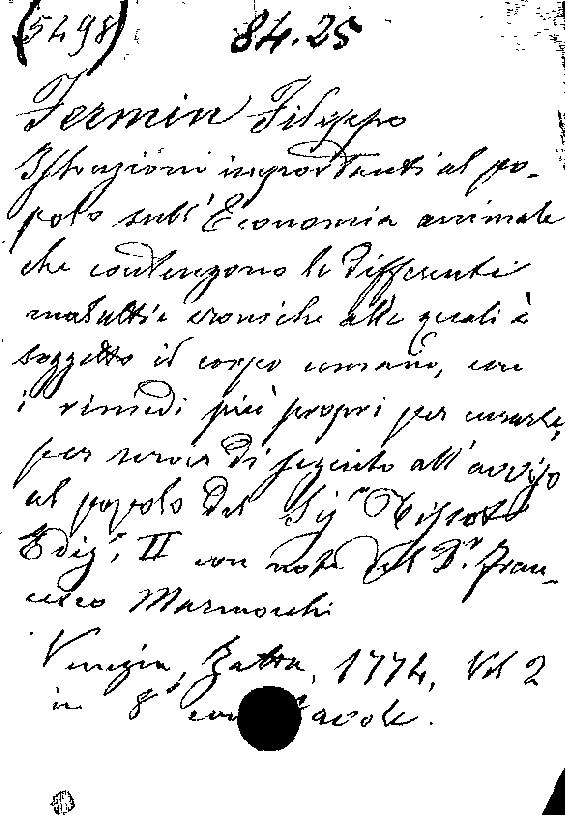 (5498) 84.25
Fermin Filippo
Istruzioni importanti al po-
polo sull'Economia animale
che contengono le differenti
malattie croniche alle quali è
soggetto il corpo umano, con
i rimedi più propri per curarle,
per servir di seguito all'avviso
al popolo del Sigr Tissot
Ediz. II con note del Dr. Fran-
cesco Marmocchi
Venezia, Zatta, 1774, Vol 2
in 8° con tavole.